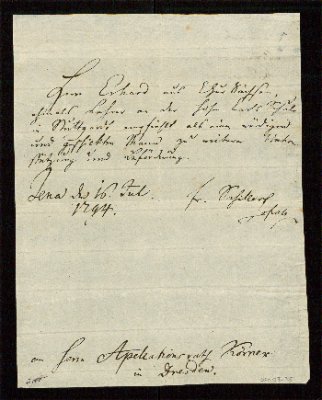 Herrn Erhard aus Chur Sachsen,
ehmals Lehrer an der hohen Carls Schule
in Stuttgard empfiehlt als einen würdigen
und geschickten Mann zu weiterer Unter
stützung und Beförderung.
Jena den 16 Jul.
1794.
Fr. Schiller
an Herrn Apellationsrath Körner
in Dresden.